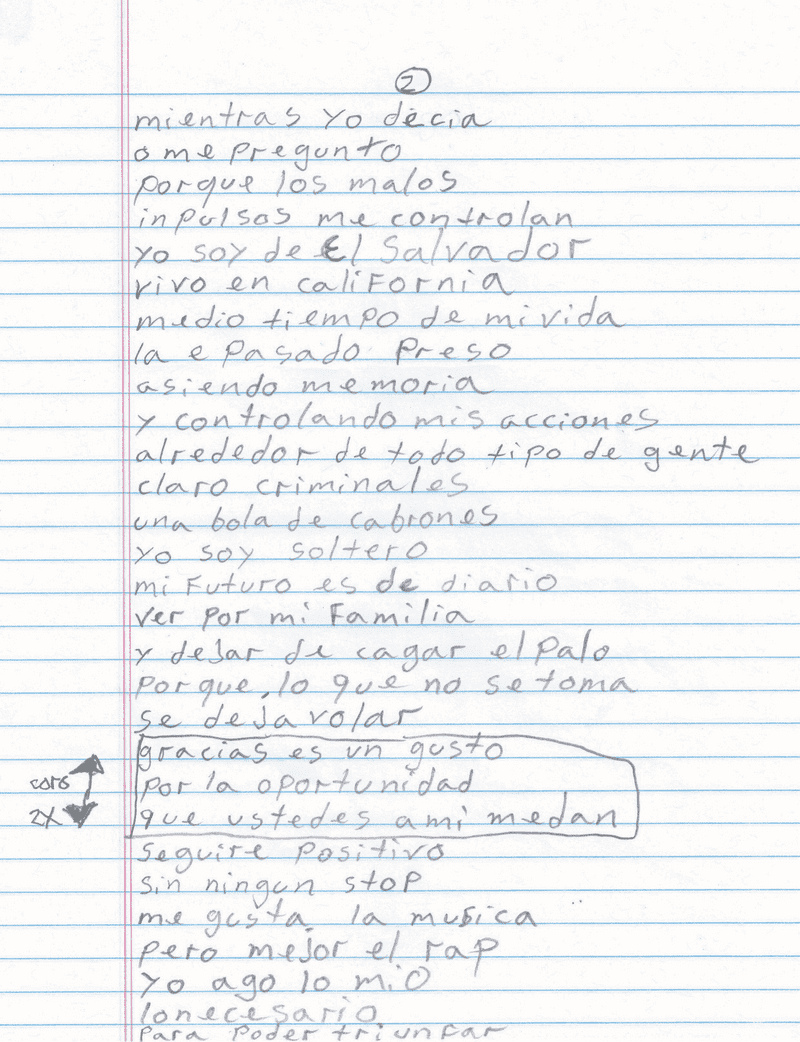 2
mientras yo decia
o me pregunto
porque los malos
inpulsos me controlan
yo soy de El Salvador
vivo en california
medio tiempo de mi vida
la e pasado preso
asiendo memoria
y controlando mis acciones
alrededor de todo tipo de gente
claro criminales
una bola de cabrones
yo soy soltero
mi futuro es de diario
ver por mi familia
y dejar de cagar el palo
porque, lo que no se toma
se deja volar
gracias es un gusto
coro por la oportunidad
2X que ustedes a mi me dan
seguire positivo
sin ningun stop
me gusta la musica
pero mejor el rap
yo ago lo mio
lo necesario
para poder triunfar